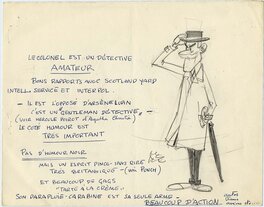 LE COLONEL EST UN DÉTECTIVE
AMATEUR
BONS RAPPORTS AVEC SCOTLAND YARD
INTELL. SERVICE ET INTERPOL.
- IL EST L'OPPOSÉ D'ARSÈNE LUPIN
C'EST UN GENTLEMAN DÉTECTIVE -
(VOIR HERCULE POIROT d'Agatha Christie)
LE COTÉ HUMOUR EST
TRÈS IMPORTANT
PAS D'HUMOUR NOIR
MAIS UN ESPRIT PINCE-SANS RIRE
TRÈS BRITANNIQUE - (voir PUNCH)
ET BEAUCOUP DE GAGS
"TARTE À LA CRÈME"
SON PARAPLUIE-CARABINE EST SA SEULE ARME -
BEAUCOUP D'ACTION.